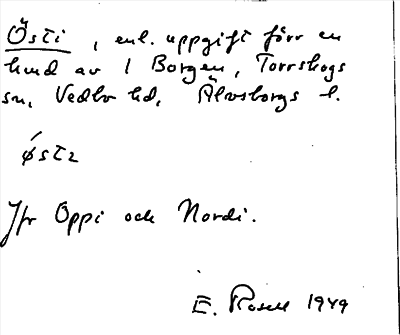 Östi, enl. uppgift förr en
hund av 1 Borgen, Torrskogs
sn, Vedbo hd, Älvsborgs l.
østɩ
Jfr Oppi och Nordi.
E. Rosell 1949